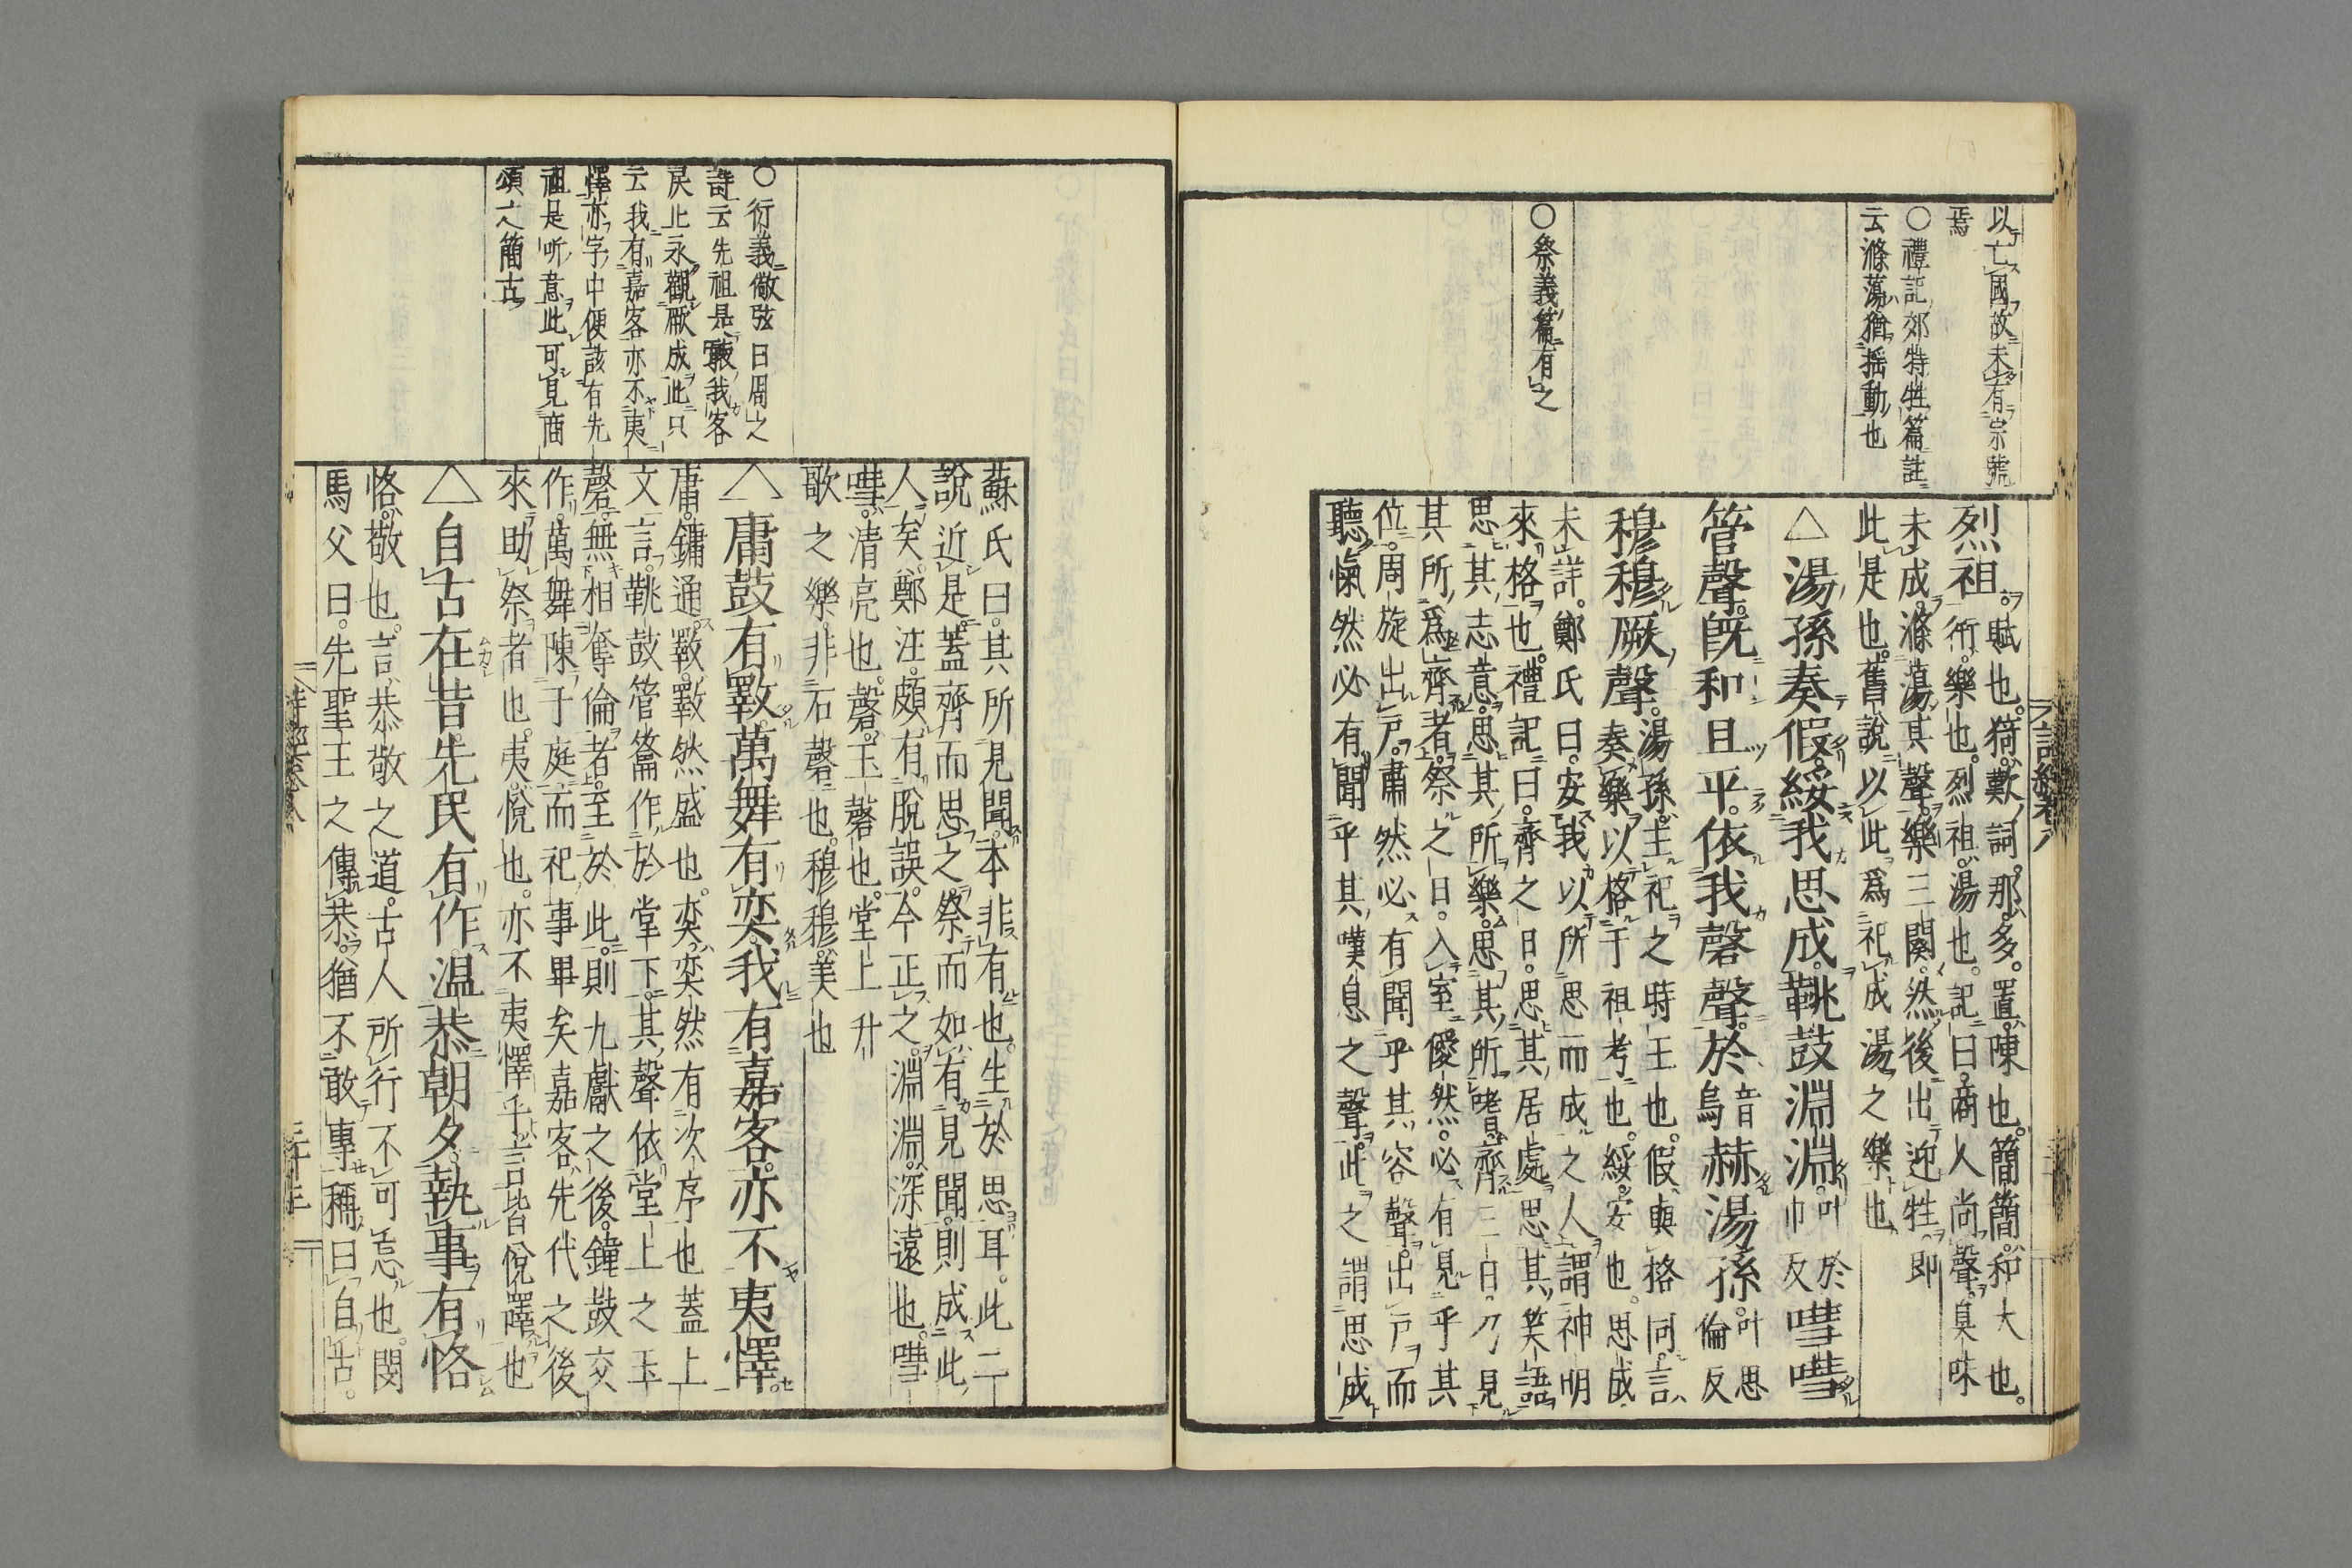 以亡國故未有宗號
焉
○禮記郊特牲篇註
云滌蕩猶揺動也
○祭義篇有之
烈祖。賦也。猗歎詞。那多。置陳也。簡簡和大也。
衎樂也。烈祖湯也。記曰。商人尚聲。臭味
未成。滌蕩其聲。樂三闋。然後出迎牲。即
此是也。舊說以此爲祀成湯之樂也
△湯孫奏假。綏我思成。鞉鼓淵淵。叶於巾反嘒嘒
管聲。旣和且平。依我磬聲。於音烏赫湯孫。叶思倫反
穆穆厥聲。湯孫主祀之時王也。假與格同。言
奏樂以格于祖考也。綏安也。思成
未詳。鄭氏曰。安我以所思而成之人。謂神明
來格也。禮記曰。齊之日。思其居處。思其笑語。
思其志意。思其所樂。思其所嗜。齊三日。乃見
其所爲齊者。祭之日。入室僾然。必有見乎其
位。周旋出戶。肅然必有聞乎其容聲。出戶而
聽愾然必有聞乎其嘆息之聲。此之謂思成
詩經卷八
○衍義倣弦曰周之
詩云先祖是聽我客
戾止永觀厥成此只
云我有嘉客亦不夷
懌亦字中便該有先
祖是听意此可見商
頌之簡古
蘇氏曰。其所見聞。本非有也。生於思耳。此二
說近是。蓋齊而思之。祭而如有見聞。則成此
人矣。鄭注。頗有脫誤。今正之。淵淵。深遠也。嘒
嘒。清亮也。磬。玉磬也。堂上升
歌之樂。非石磬也。穆穆。美也
△庸鼓有斁。萬舞有奕。我有嘉客。亦不夷懌。
庸。鏞通。斁。斁然盛也。奕。奕然有次序也蓋上
文言。鞉鼓管籥作於堂下。其聲依堂上之玉
磬。無相奪倫者。至於此。則九獻之後。鐘鼓交
作。萬舞陳于庭。而祀事畢矣嘉客。先代之後
來助祭者也。夷。悅也。亦不夷懌乎。言皆悅懌也
△自古在昔。先民有作。温恭朝夕。執事有恪
恪。敬也。言恭敬之道。古人所行不可忘也。閔
馬父曰。先聖王之傳恭。猶不敢專稱曰自古。
詩經卷八
三十三